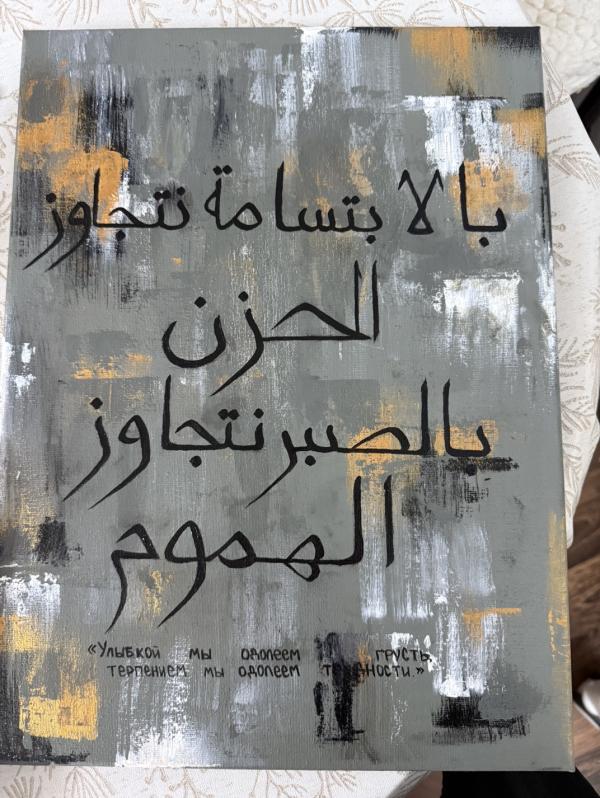 بالابتسامة نتجاوز
الحزن
بالصبر نتجاوز
الهموم
«Улыбкой мы одолеем грусть,
терпением мы одолеем трудности.»